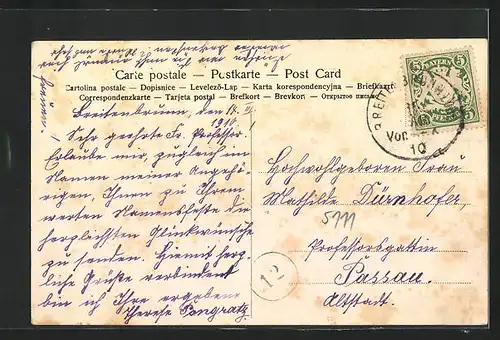 Carte postale — Postkarte — Post Card
Cartolina postale — Dopisnice — Levelező-Lap — Karta korespondencyjna — Briefkaart
Correspondenzkarte — Tarjeta postal — Brefkort — Brevkort — Открытое письмо
Breitenbrunn, den 14.
1910.
Sehr geehrte Fr. Professor
Erlaube mir, zugleich im
Namen meiner Angehö-
rigen, Ihnen zu Ihrem
werten Namensfeste die
herzlichsten Glückwünsche
zu senden. Hiemit herz-
liche Grüße verbindend
bin ich Ihre ergebene
Therese Pangratz
freuen.
BAYERN
5 5
BREIT
Vor.
10
Hochwohlgeboren Frau
Mathilde Dürnhofer,
5111
Professorsgattin
Passau.
Altstadt.
12